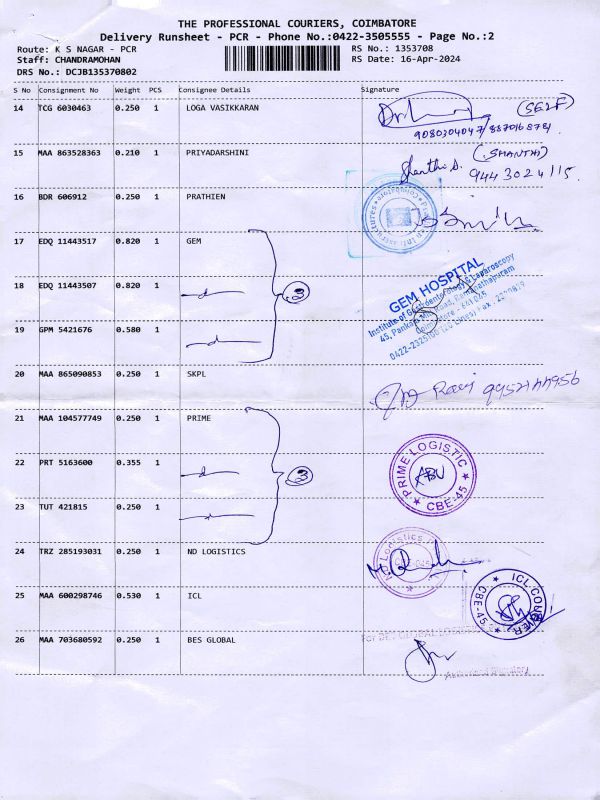 THE PROFESSIONAL COURIERS, COIMBATORE
Delivery Runsheet - PCR - Phone No.:0422-3505555 - Page No.:2
Route: K S NAGAR - PCR
RS No.: 1353708
Staff: CHANDRAMOHAN
RS Date: 16-Apr-2024
DRS No.: DCJB135370802
S No Consignment No Weight PCS Consignee Details Signature
14 TCG 6030463 0.250 1 LOGA VASIKKARAN (SELF)
15 MAA 863528363 0.210 1 PRIYADARSHINI Shanthi S. (SHANTHI)
9443024115.
16 BDR 606912 0.250 1 PRATHIEN
17 EDQ 11443517 0.820 1 GEM
18 EDQ 11443507 0.820 1 3
GEM HOSPITAL
Institute of Gastroenterology & Laparoscopy
45, Pankaja Mill Road, Ramanathapuram
Coimbatore - 641 045
19 GPM 5421676 0.580 1
20 MAA 865090853 0.250 1 SKPL Ravi
21 MAA 104577749 0.250 1 PRIME
22 PRT 5163600 0.355 1 3
PRIME LOGISTIC
ABU
CBE-45
23 TUT 421815 0.250 1
24 TRZ 285193031 0.250 1 ND LOGISTICS
25 MAA 600298746 0.530 1 ICL
ICL COURIER
CBE-45
26 MAA 703680592 0.250 1 BES GLOBAL
Authorised Signatory